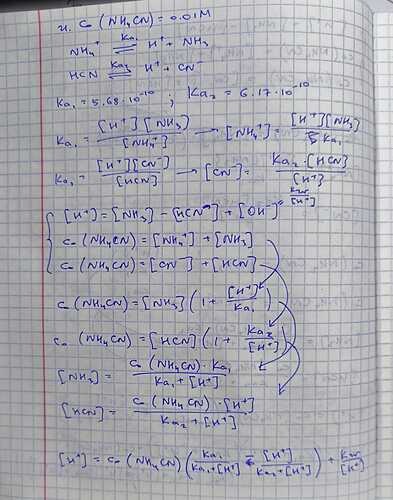 и. C₀(NH₄CN) = 0.01M
NH₄⁺ ⇌ (Ka₁) H⁺ + NH₃
HCN ⇌ (Ka₂) H⁺ + CN⁻
Ka₁ = 5.68·10⁻¹⁰ ; Ka₂ = 6.17·10⁻¹⁰
Ka₁ = [H⁺][NH₃]/[NH₄⁺] → [NH₄⁺] = [H⁺][NH₃]/Ka₁
Ka₂ = [H⁺][CN⁻]/[HCN] → [CN⁻] = Ka₂·[HCN]/[H⁺]
[H⁺] = [NH₃] - [HCN] + [OH⁻] Kw/[H⁺]
C₀(NH₄CN) = [NH₄⁺] + [NH₃]
C₀(NH₄CN) = [CN⁻] + [HCN]
C₀(NH₄CN) = [NH₃](1 + [H⁺]/Ka₁)
C₀(NH₄CN) = [HCN](1 + Ka₂/[H⁺])
[NH₃] = C₀(NH₄CN)·Ka₁/(Ka₁ + [H⁺])
[HCN] = C₀(NH₄CN)·[H⁺]/(Ka₂ + [H⁺])
[H⁺] = C₀(NH₄CN)(Ka₁/(Ka₁+[H⁺]) - [H⁺]/(Ka₂+[H⁺])) + Kw/[H⁺]